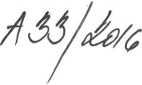 A 33/2016